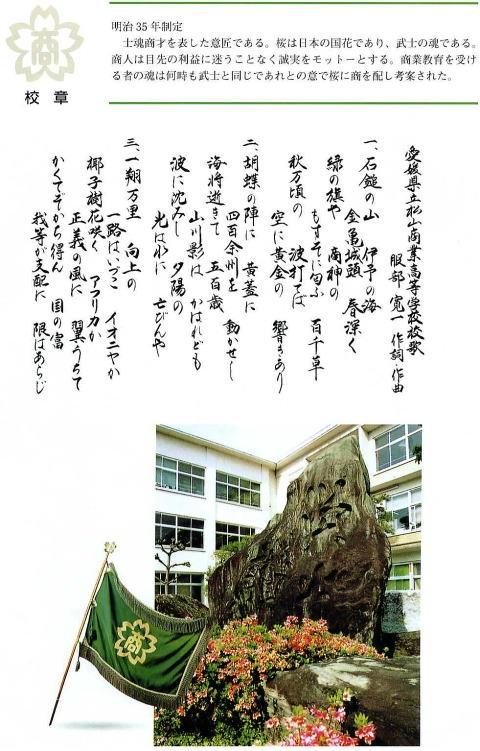 商
校章
明治35年制定
士魂商才を表した意匠である。桜は日本の国花であり、武士の魂である。
商人は目先の利益に迷うことなく誠実をモットーとする。商業教育を受け
る者の魂は何時も武士と同じであれとの意で桜に商を配し考案された。
愛媛県立松山商業高等学校校歌
服部寛一 作詞・作曲
一、石鎚の山 伊予の海
金亀城頭 春深く
緑の旗や 商神の
もすそに匂ふ 百千草
秋万頃の 波打てば
空に黄金の 響きあり
二、胡蝶の陣に 黄蓋に
四百余州を 動かせし
海将逝きて 五百歳
山川影は かはれども
波に沈みし 夕陽の
光はわに 亡びんや
三、一翔万里 向上の
一路はいづこ イオニヤか
椰子樹花咲く アフリカか
正義の風に 翼うちて
かくてぞかち得ん 国の富
我等が支配に 限はあらじ
商